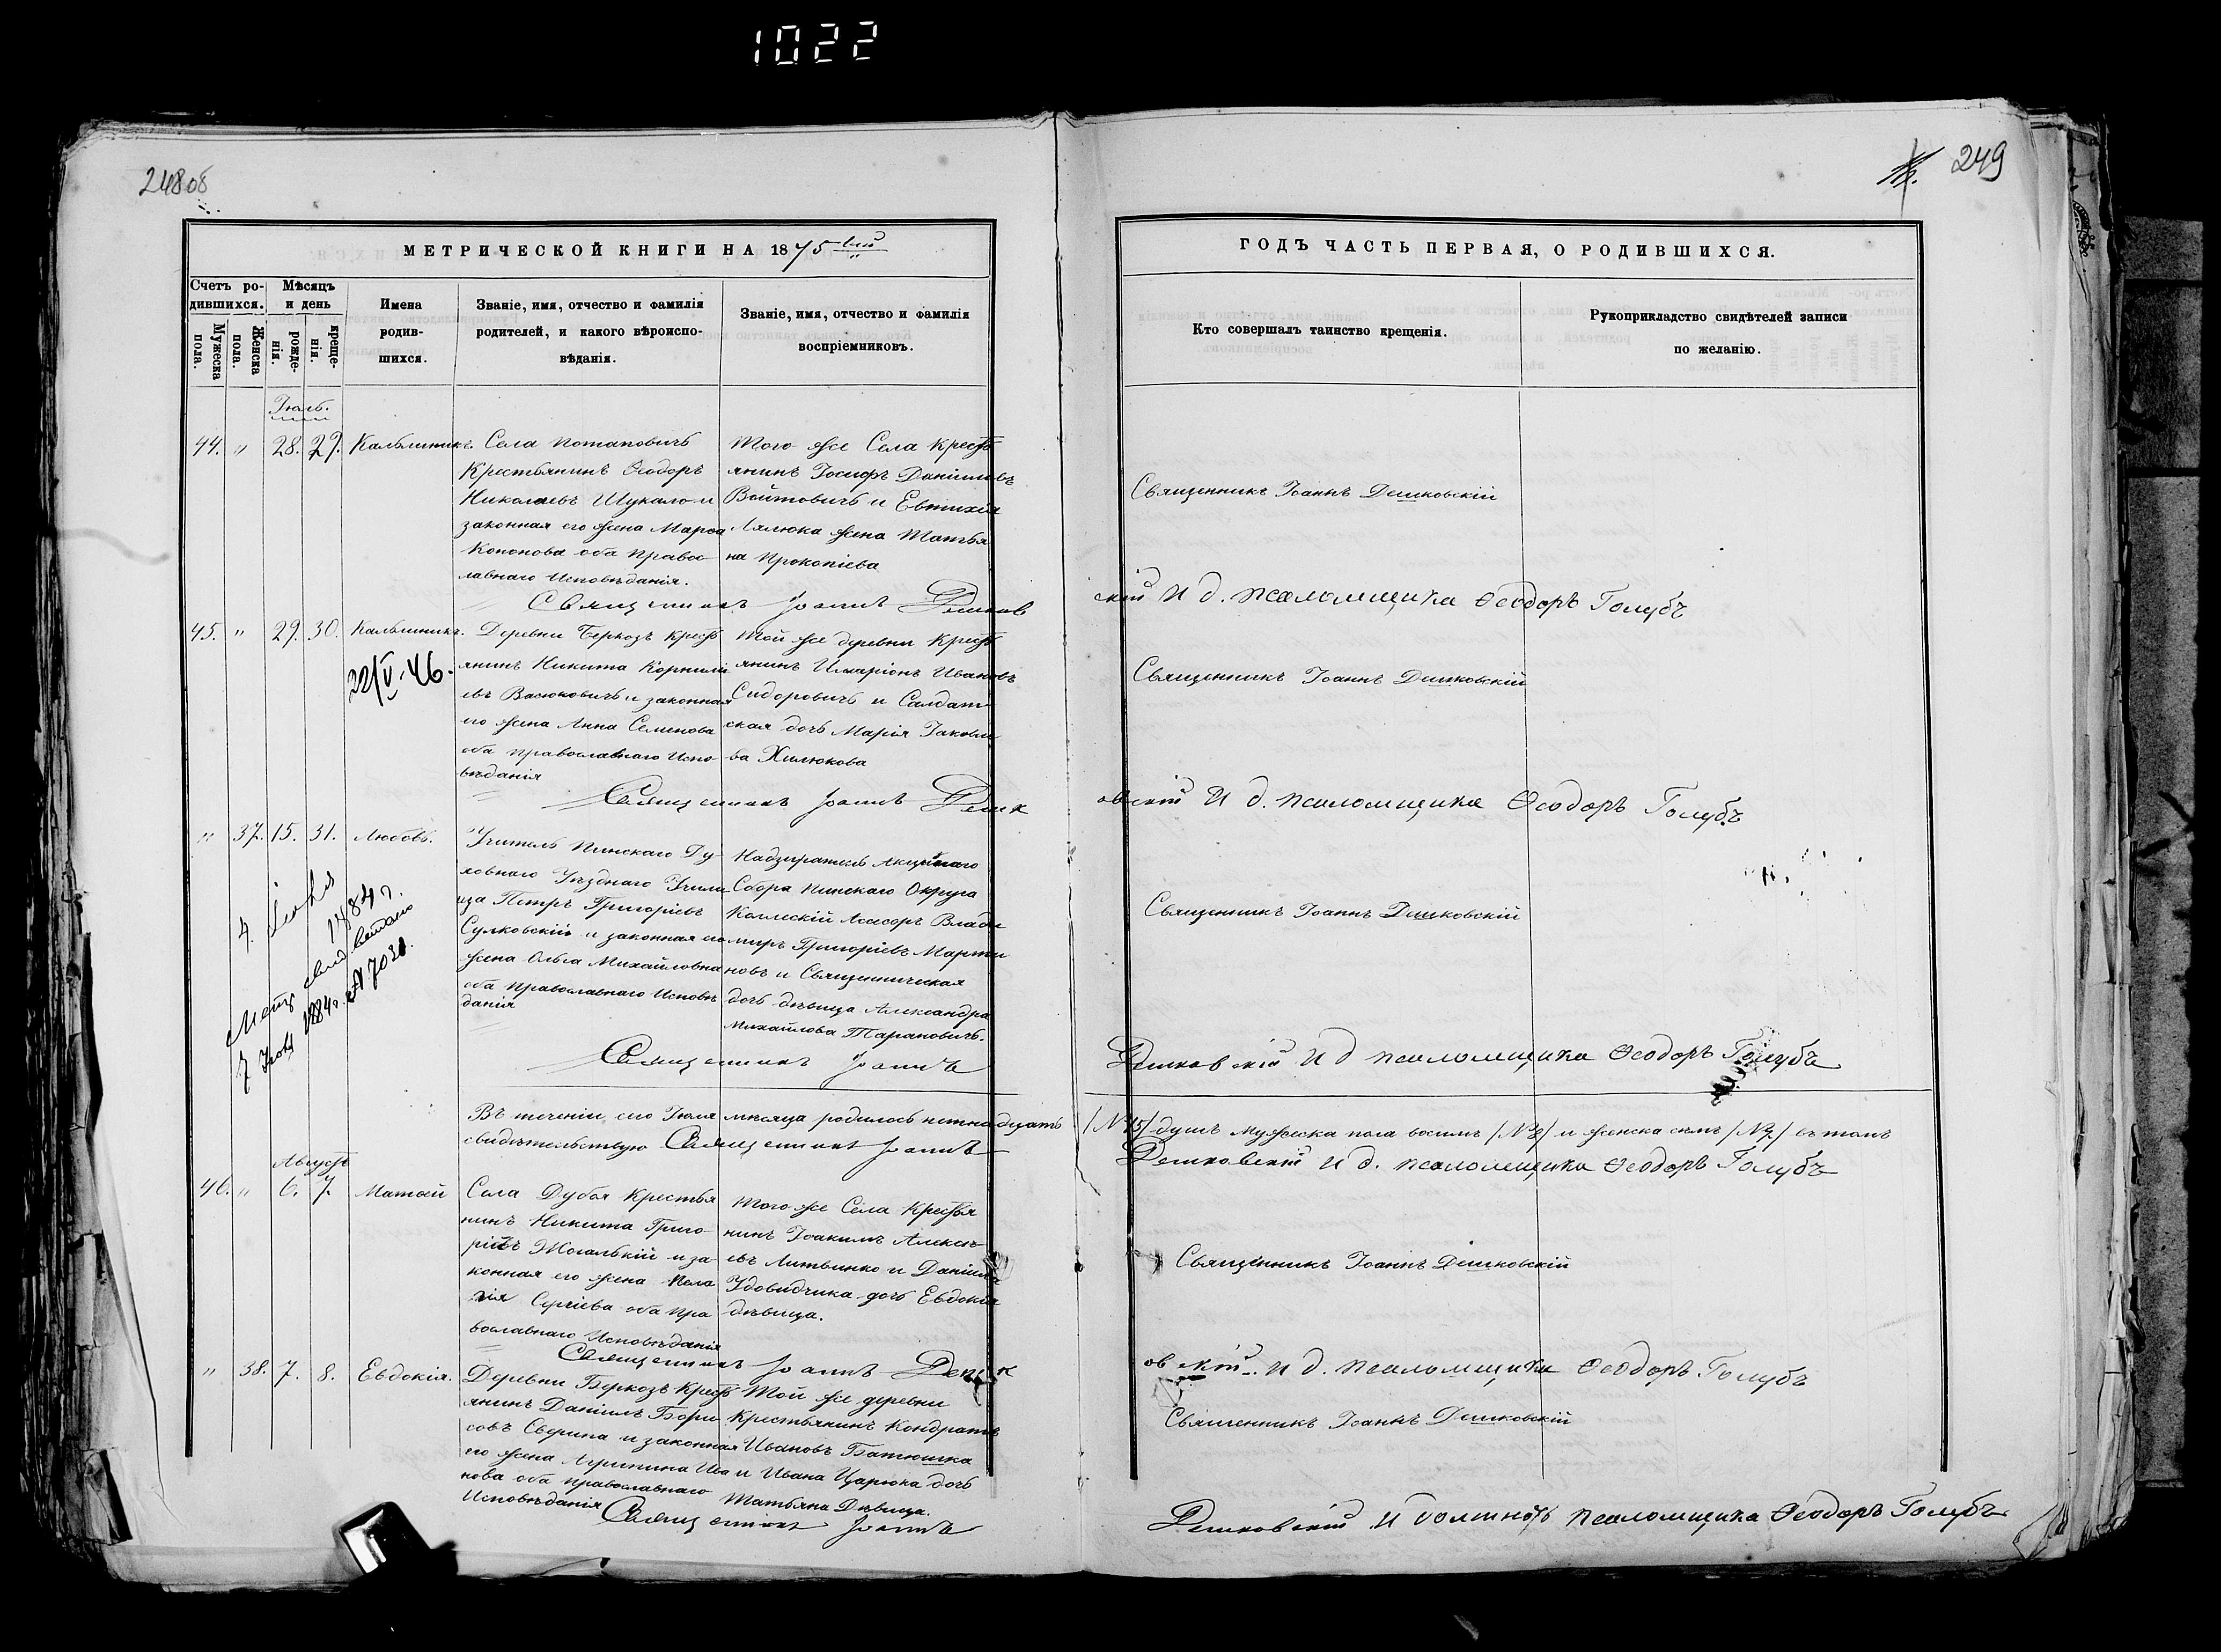 1022
248об
249
МЕТРИЧЕСКОЙ КНИГИ НА 1875
ГОДЪ ЧАСТЬ ПЕРВАЯ, О РОДИВШИХСЯ.
Счетъ ро-
дившихся.
Мужеска
пола.
Женска
пола.
Мѣсяцъ
и день
рожде-
нія.
креще-
нія.
Имена
родив-
шихся.
Званіе, имя, отчество и фамилія
родителей, и какого вѣроиспо-
вѣданія.
Званіе, имя, отчество и фамилія
воспріемниковъ.
Кто совершалъ таинство крещенія.
Рукоприкладство свидѣтелей записи
по желанію.
Іюль.
44. " 28. 29. Каллиникъ.
Села Потаповичъ
Крестьянинъ Ѳеодоръ
Николаевъ Шукало и
законная его жена Марѳа
Кононова оба право-
лавнаго Исповѣданія.
Того же Села Крестъ
янинъ Іосифъ Даніиловъ
Войтовичъ и Евтихія
жена Татья
на Прокопіева
Священникъ Іоаннъ Дешковскій
Священникъ Іоаннъ Дешков
скій И д. псаломщика Ѳеодоръ Голубъ
45. " 29. 30. Каллиникъ.
22/V-46.
Деревни Беркозъ Крестъ
янинъ Никита Корнилі
евъ Васюковичъ и законная
его жена Анна Семенова
оба православнаго Испо-
вѣданія
Той же деревни Крестъ
янинъ Иларіонъ Ивановъ
Сидоровичъ и Салдат
ская дочь Марія Іаковле
ва Хилюкова
Священникъ Іоаннъ Дешковскій
Священникъ Іоаннъ Дешк
овскій И д. псаломщика Ѳеодоръ Голубъ
" 37. 15. 31. Любовь.
1884 г.
1884 г. № 7030.
Учитель Пинскаго Ду-
ховнаго Уѣзднаго Учили
ща Петръ Григоріевъ
Сулковскій и законная его
жена Ольга Михайловна
оба православнаго Исповѣ
данія
Надзиратель Акцизнаго
Сбора Пинскаго Округа
Коллескій Асесоръ Влади
миръ Григоріевъ Марти
новъ и Священническая
дочь дѣвица Александра
Михайлова Тарановичъ.
Священникъ Іоаннъ Дешковскій
Священникъ Іоаннъ
Дешковскій И д псаломщика Ѳеодоръ Голубъ
Въ теченіи сего Іюля мѣсяца родилось пятнадцать
/№ 15/ душъ мужеска пола восимъ /№ 8/ и женска семъ /№ 7/ въ томъ
свидѣтельствую Священникъ Іоаннъ
Дешковскій И д. псаломщика Ѳеодоръ Голубъ
Августъ
46. " 6. 7. Матѳій
Села Дубоя Крестья
нинъ Никита Григо-
ріевъ Жогалькій и за-
конная его жена Пела
гія Сергіева оба пра
вославнаго Исповѣданія
Того же Села Крестья
нинъ Іоакимъ Алексѣ
евъ Литвинко и Даніила
Удовидчика дочь Евдокія
дѣвица.
Священникъ Іоаннъ Дешковскій
Священникъ Іоаннъ Дешк
овскій И д. псаломщика Ѳеодоръ Голубъ
" 38. 7. 8. Евдокія.
Деревни Беркозъ Крестъ
янинъ Даніилъ Бори
совъ Сверина и законная
его жена Агрипина Ива
нова оба православнаго
Исповѣданія
Той же деревни
Крестьянинъ Кондратъ
Ивановъ Батюшка
и Ивана Царюка дочь
Татьяна Дѣвица.
Священникъ Іоаннъ Дешковскій
Священникъ Іоаннъ
Дешковскій И должность псаломщика Ѳеодоръ Голубъ